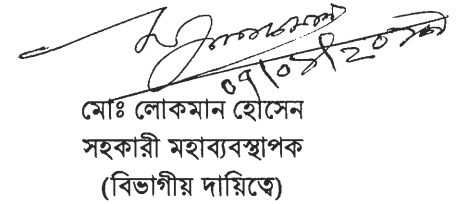 মোঃ লোকমান হোসেন
সহকারী মহাব্যবস্থাপক
(বিভাগীয় দায়িত্বে)